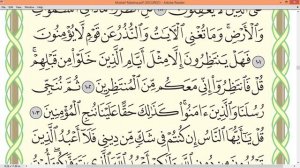 وَٱلْأَرْضِ ۚ وَمَا تُغْنِى ٱلْـَٔايَـٰتُ وَٱلنُّذُرُ عَن قَوْمٍ لَّا يُؤْمِنُونَ
١٠١ فَهَلْ يَنتَظِرُونَ إِلَّا مِثْلَ أَيَّامِ ٱلَّذِينَ خَلَوْا۟ مِن قَبْلِهِمْ ۚ
قُلْ فَٱنتَظِرُوٓا۟ إِنِّى مَعَكُم مِّنَ ٱلْمُنتَظِرِينَ ١٠٢ ثُمَّ نُنَجِّى
رُسُلَنَا وَٱلَّذِينَ ءَامَنُوا۟ ۚ كَذَٰلِكَ حَقًّا عَلَيْنَا نُنجِ ٱلْمُؤْمِنِينَ ١٠٣
قُلْ يَـٰٓأَيُّهَا ٱلنَّاسُ إِن كُنتُمْ فِى شَكٍّ مِّن دِينِى فَلَآ أَعْبُدُ ٱلَّذِينَ